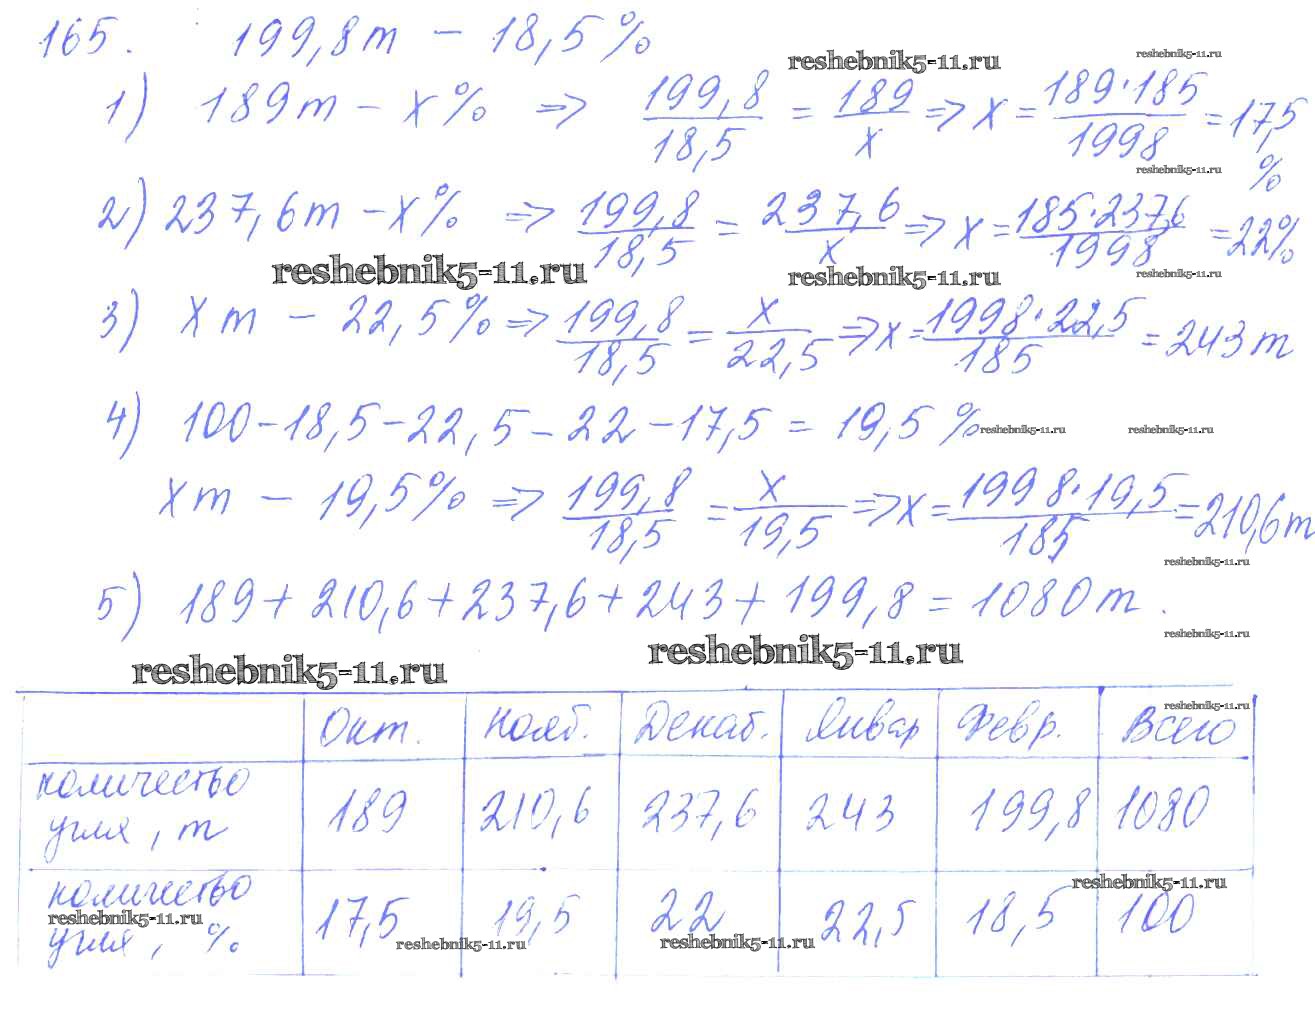 165. 199,8т – 18,5%
reshebnik5-11.ru reshebnik5-11.ru
1) 189т – x% => 199,8/18,5 = 189/x => x = 189·185/1998 = 17,5%
reshebnik5-11.ru
2) 237,6т – x% => 199,8/18,5 = 237,6/x => x = 185·237,6/1998 = 22%
reshebnik5-11.ru reshebnik5-11.ru reshebnik5-11.ru
3) xт – 22,5% => 199,8/18,5 = x/22,5 => x = 1998·22,5/185 = 243т
4) 100 – 18,5 – 22,5 – 22 – 17,5 = 19,5%
reshebnik5-11.ru reshebnik5-11.ru
xт – 19,5% => 199,8/18,5 = x/19,5 => x = 1998·19,5/185 = 210,6т
reshebnik5-11.ru
5) 189 + 210,6 + 237,6 + 243 + 199,8 = 1080т.
reshebnik5-11.ru
reshebnik5-11.ru reshebnik5-11.ru
reshebnik5-11.ru
Окт. Нояб. Декаб. Январ Февр. Всего
количество
угля, т 189 210,6 237,6 243 199,8 1080
reshebnik5-11.ru
количество
угля, % 17,5 19,5 22 22,5 18,5 100
reshebnik5-11.ru reshebnik5-11.ru reshebnik5-11.ru